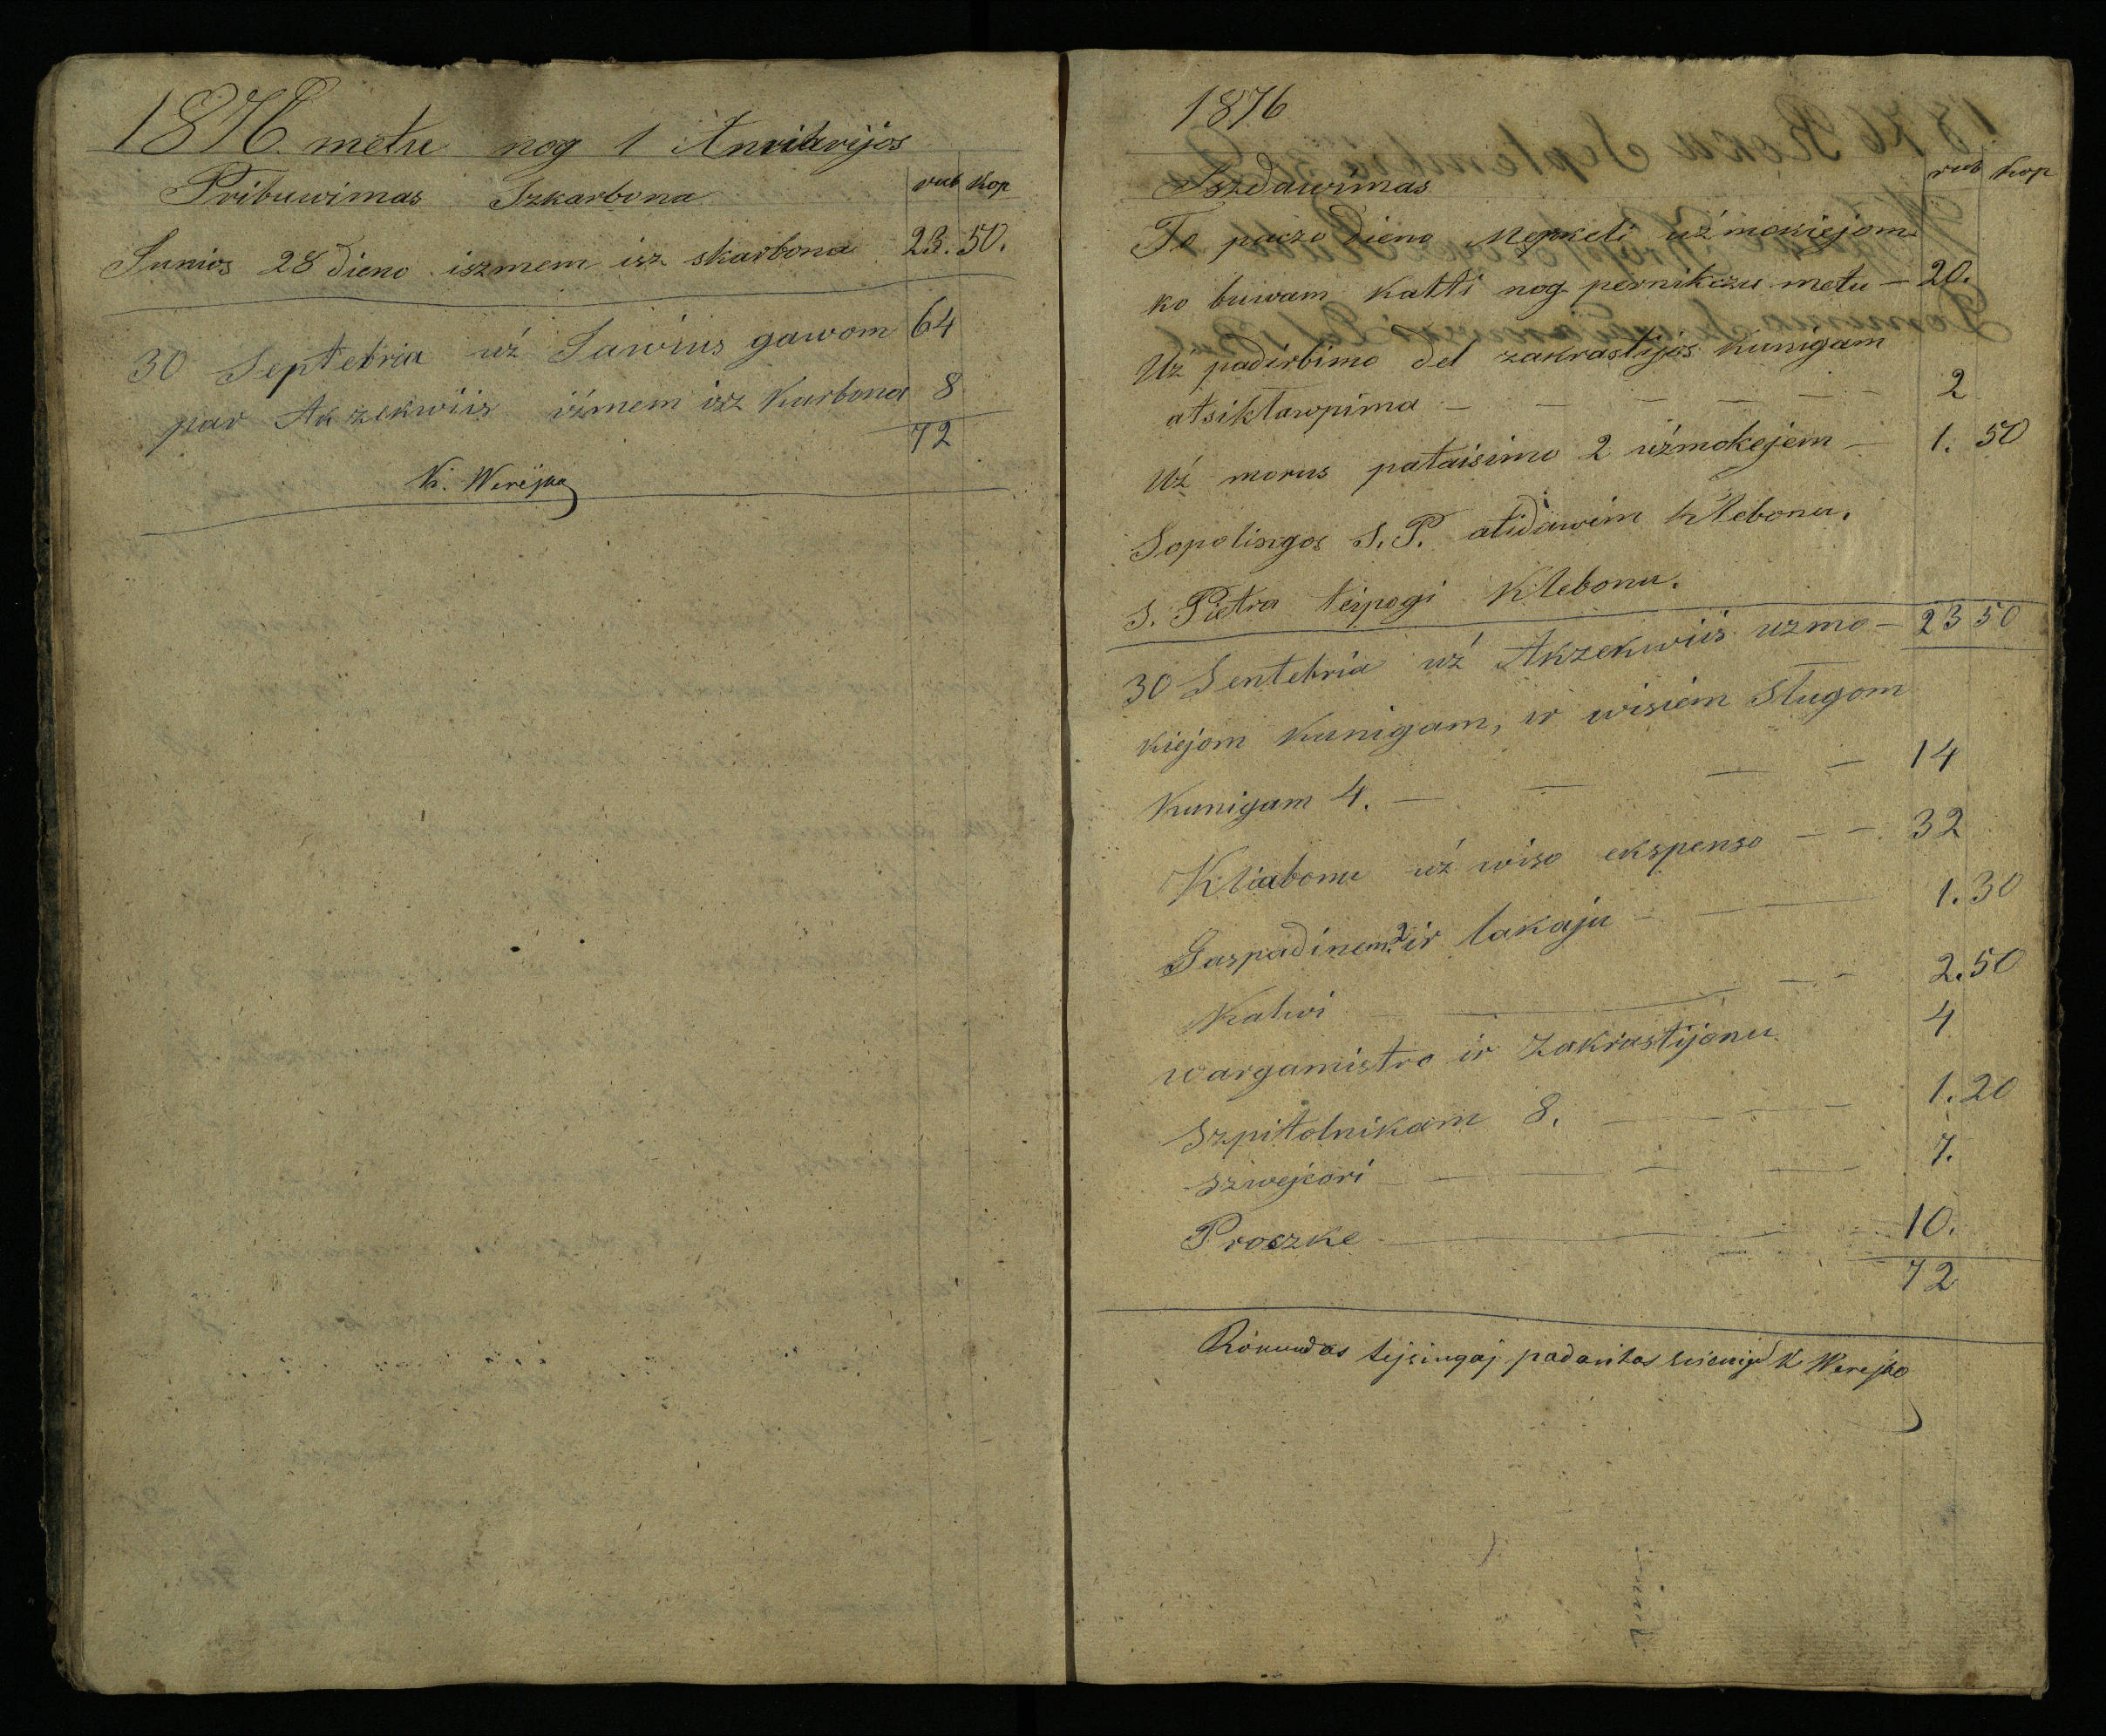 1876 metu nog 1 Anvitarijos
rub kop
Pribuwimas Szkarbona
Junios 28 dieno iszmem isz skarbona 23. 50.
30 Septebria uź Sawius gawom 64
par Akzekwiis iźmem isz karbona 8
72
K. Werejka
1876
rub kop
Iszdawimas
To paczo dieno Mepkeli uźmokiejom
ko buwam kałti nog pernikszu metu — 20.
Uz padirbimo del zakrastijos kunigam
atsikławpima — — — — — 2
Uź morus pataisimo 2 uźmokejem — 1. 50
Sopolingos S. P. atidawim Kłebonu.
S. Pietra teipogi Klebonu.
23 50
30 Sentebria uź Akzekwiis uzmo-
kiejom kunigam, ir wisiem Sługom
Kunigam 4. — — — — 14
Kliabonu uź wiso ekspenso — — 32
Gaspadinem 2 ir lakaju — — 1. 30
Kalwi — — — — 2. 50
wargamistro ir Zakristijonu 4
Szpitolnikam 8. — — — 1. 20
Szwejcori — — — — 7.
Proszke — — — 10.
72
Rokundas tejsingaj padaritas K Werejko